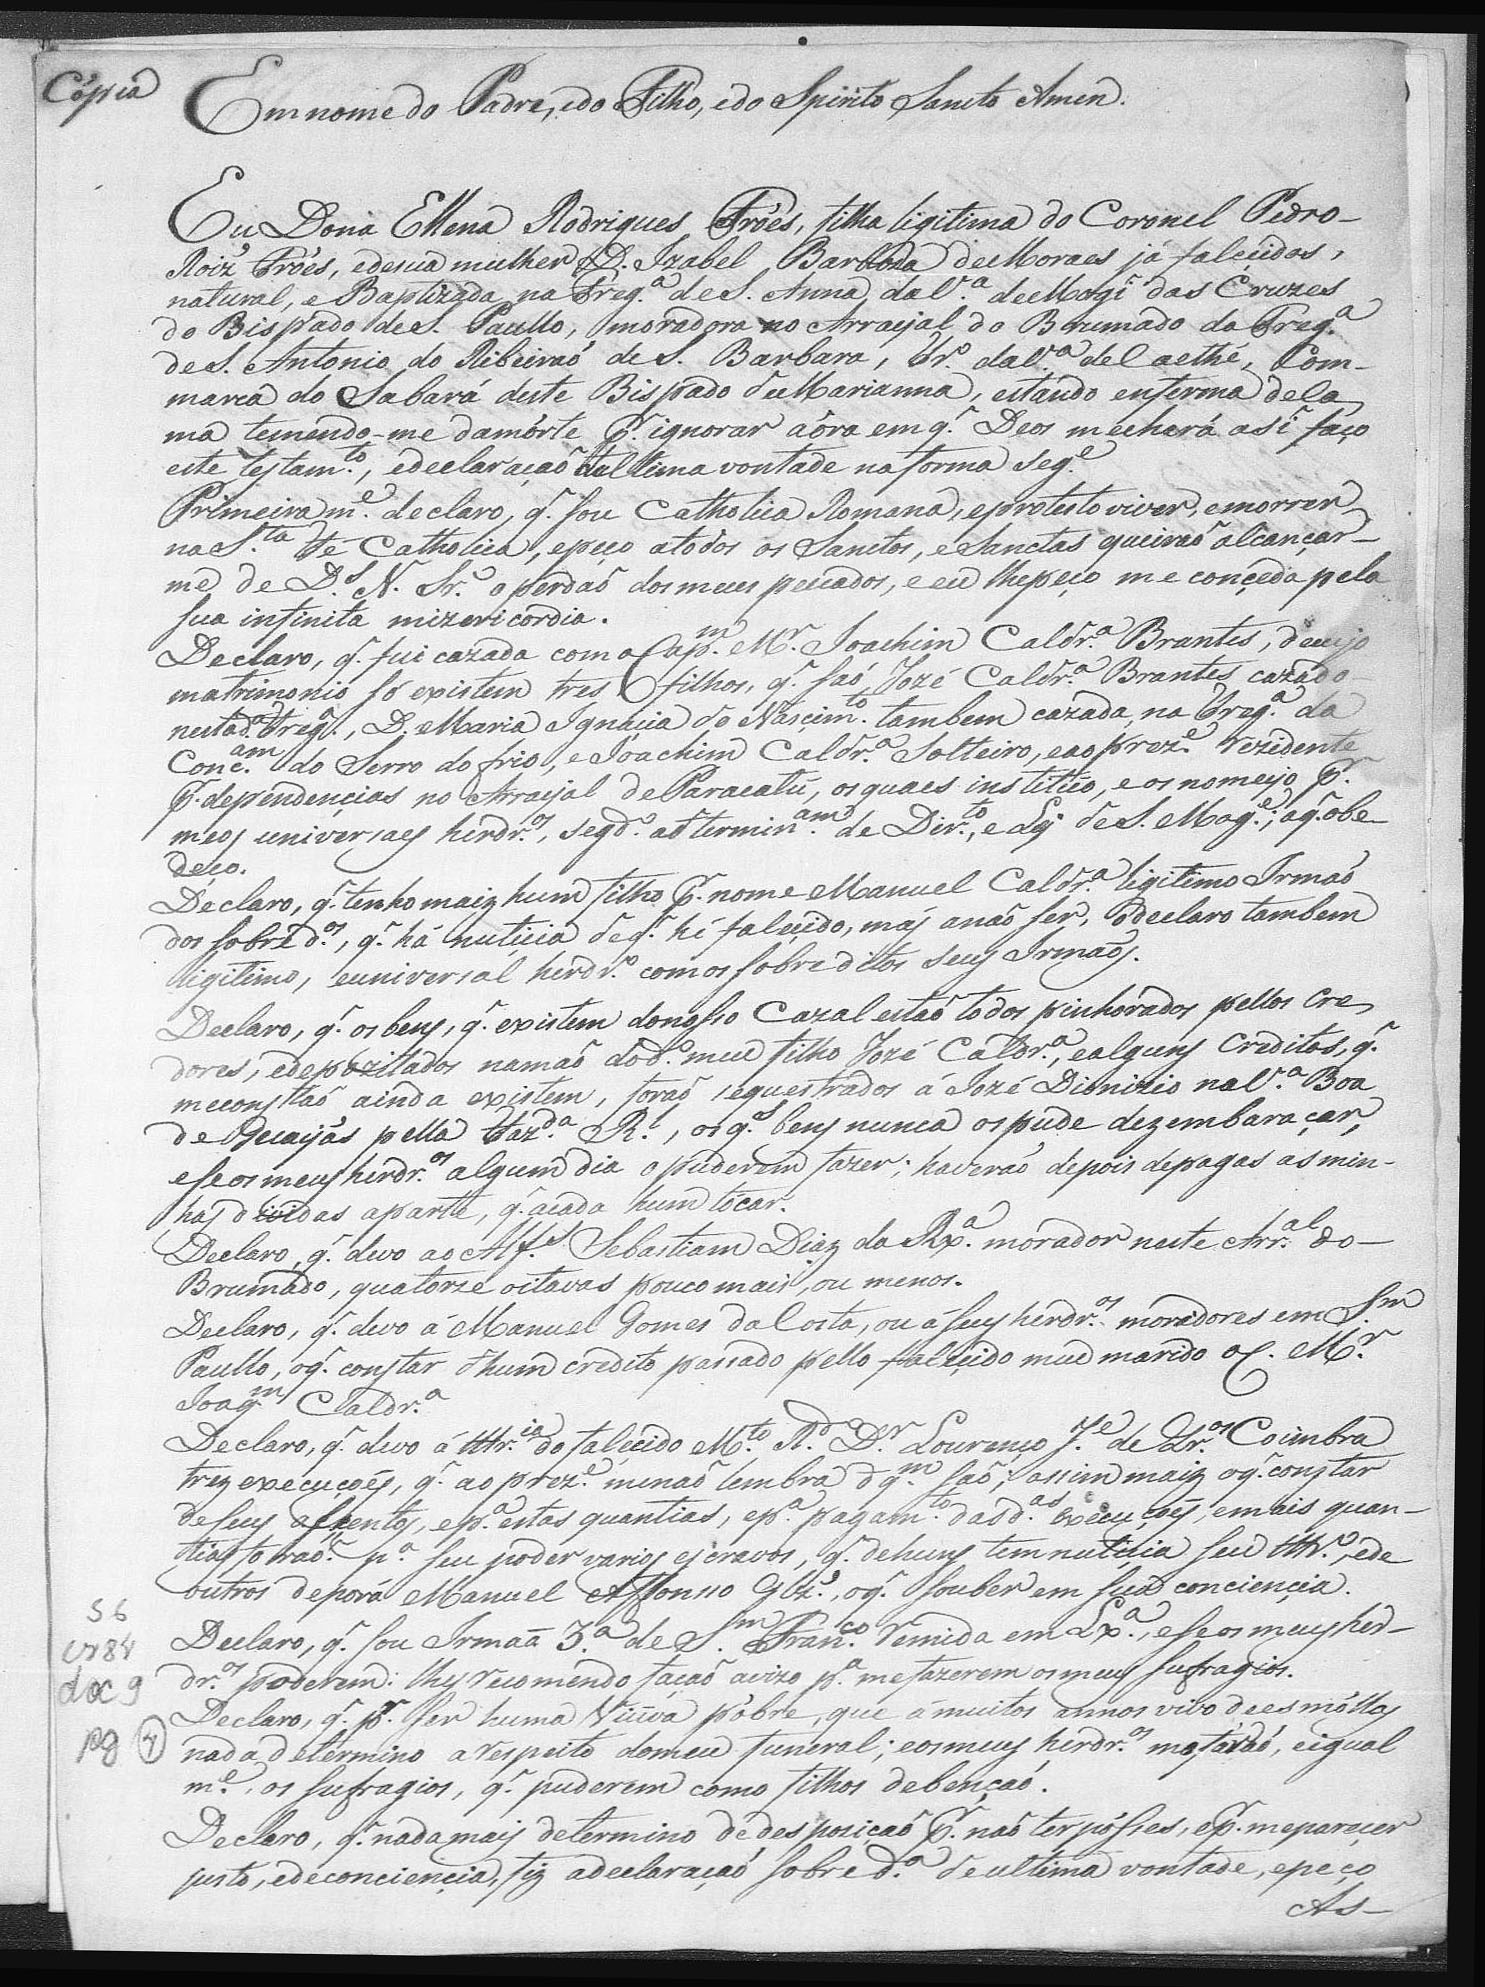 Cópia
Em nome do Padre, edo Filho, edo Spirito Sancto Amen.
Eu Dona Ellena Rodrigues Fróes, filha ligitima do Coronel Pedro
Roiz' Fróes, edesua mulher D. Izabel Barboza deMoraes já falecidos,
natural, e Baptizada na Freg.ª deS. Anna dav.ª deMogi das Cruzes
do Bispado deS. Paullo, moradora no Arrayal do Brumado da Freg.ª
deS. Antonio do Ribeiraõ de S. Barbara, Tr.º dav.ª deCaethé, Com-
marca do Sabará deste Bispado deMarianna, estando enferma dela
ma temendo-me damórte p.r ignorar aóra emq.' Deos mechará asi faço
este testam.to, edeclaraçaõ dultima vontade naforma seg.e
Primeiram.e declaro, q.' sou Catholica Romana, eprotesto viver, emorrer
naS.ta Fé Catholica, epeço atodos os Sanctos, eSanctas queiraõ alcançar-
me de D.s N. Sr.º operdaõ dos meus peccados, e eu lhepeço me conçeda pela
sua infinita mizericordia.
Declaro, q.' fui cazada com o Cap.m M.r Joachim Caldr.ª Brantes, decujo
matrimonio só existem tres filhos, q.' saõ Jozé Caldr.ª Brantes cazado
nestad.ª Freg.ª, D. Maria Ignácia do Nascim.to tambem cazada na Freg.ª da
Conc.am do Serro dofrio, e Joachim Caldr.ª Solteiro, eaoprez.e rezidente
p.r dependencias no Arrayal deParacatú, osquaes instituo, eos nomeyo p.r
meos universaes herdr.os, segd.º adetermin.am de Dir.to, e Ley deS. Mag.e, aq.' obe-
deço.
Declaro, q.' tenho maiz hum filho p.r nome Manuel Caldr.ª ligitimo Irmaõ
dos sobred.os, q.' há nuticia deq.' hé falecido, mas anaõ ser, odeclaro tambem
ligitimo, euniversal herdr.º comos sobreditos seus Irmaõs.
Declaro, q.' os bens, q.' existem donosso Cazal estaõ todos pinhorados pellos cre
dores, edepozitados namaõ dod.º meu filho Jozé Caldr.ª, ealguns Creditos, q.'
meconstaõ ainda existem, foraõ sequestrados á Jozé Dionizio nav.ª Boa
de Goayás pella Faz.da R.l, osq.s bens nunca ospude dezembaraçar,
eseos meus herdr.os algum dia opuderem fazer; haveraõ depois depagas as min-
has dividas aparte, q.' acada hum tocar.
Declaro, q.' devo ao Alf.s Sebastiam Diaz da Rx.ª morador neste Arr.al do
Brumado, quatorze oitavas pouco mais, ou menos.
Declaro, q.' devo á Manuel Gomes daCosta, ou áseus herdr.os moradores em S.m
Paullo, oq.' constar dhum credito passado pello falecido meu marido oC. M.r
Joaq.m Caldr.ª
Declaro, q.' devo á Ttr.ia do falecido M.to R.d D.r Lourenço J.e de Qr.os Coimbra
trez execuçoẽs, q.' ao prez.e menaõ lembra dq.m saõ; assim maiz oq.' constar
deseus assentos, ep.ª estas quantias, ep.ª pagam.to dasd.as execuçoẽs, emais quan-
tias foraõ p.ª seu poder varios escravos, q.' dehuns tem nuticia seu Ttr.º, ede
outros deporá Manuel Affonso Glz.', oq.' souber em sua conciencia.
Declaro, q.' sou Irmaã 3.ª de S.m Fran.co remida em Lx.ª, eseos meus her-
dr.os poderem: lhes recomendo façaõ avizo p.ª mefazerem os meus sufragios.
Declaro, q.' p.r ser huma viuva póbre, que ámuitos annos vivo deesmóllas
nada determino arespeito domeu funeral; eosmeus herdr.os mo faraõ, eigual
m.e, os sufragios, q.' puderem como filhos debençaõ.
Declaro, q.' nadamais determino dedesposiçaõ p.r naõ terpósses, ep.r meparecer
justo, edeconciencia, fiz adeclaraçaõ sobred.ª deultima vontade, epeço
As-
56
cx84
doc 9
pg 4